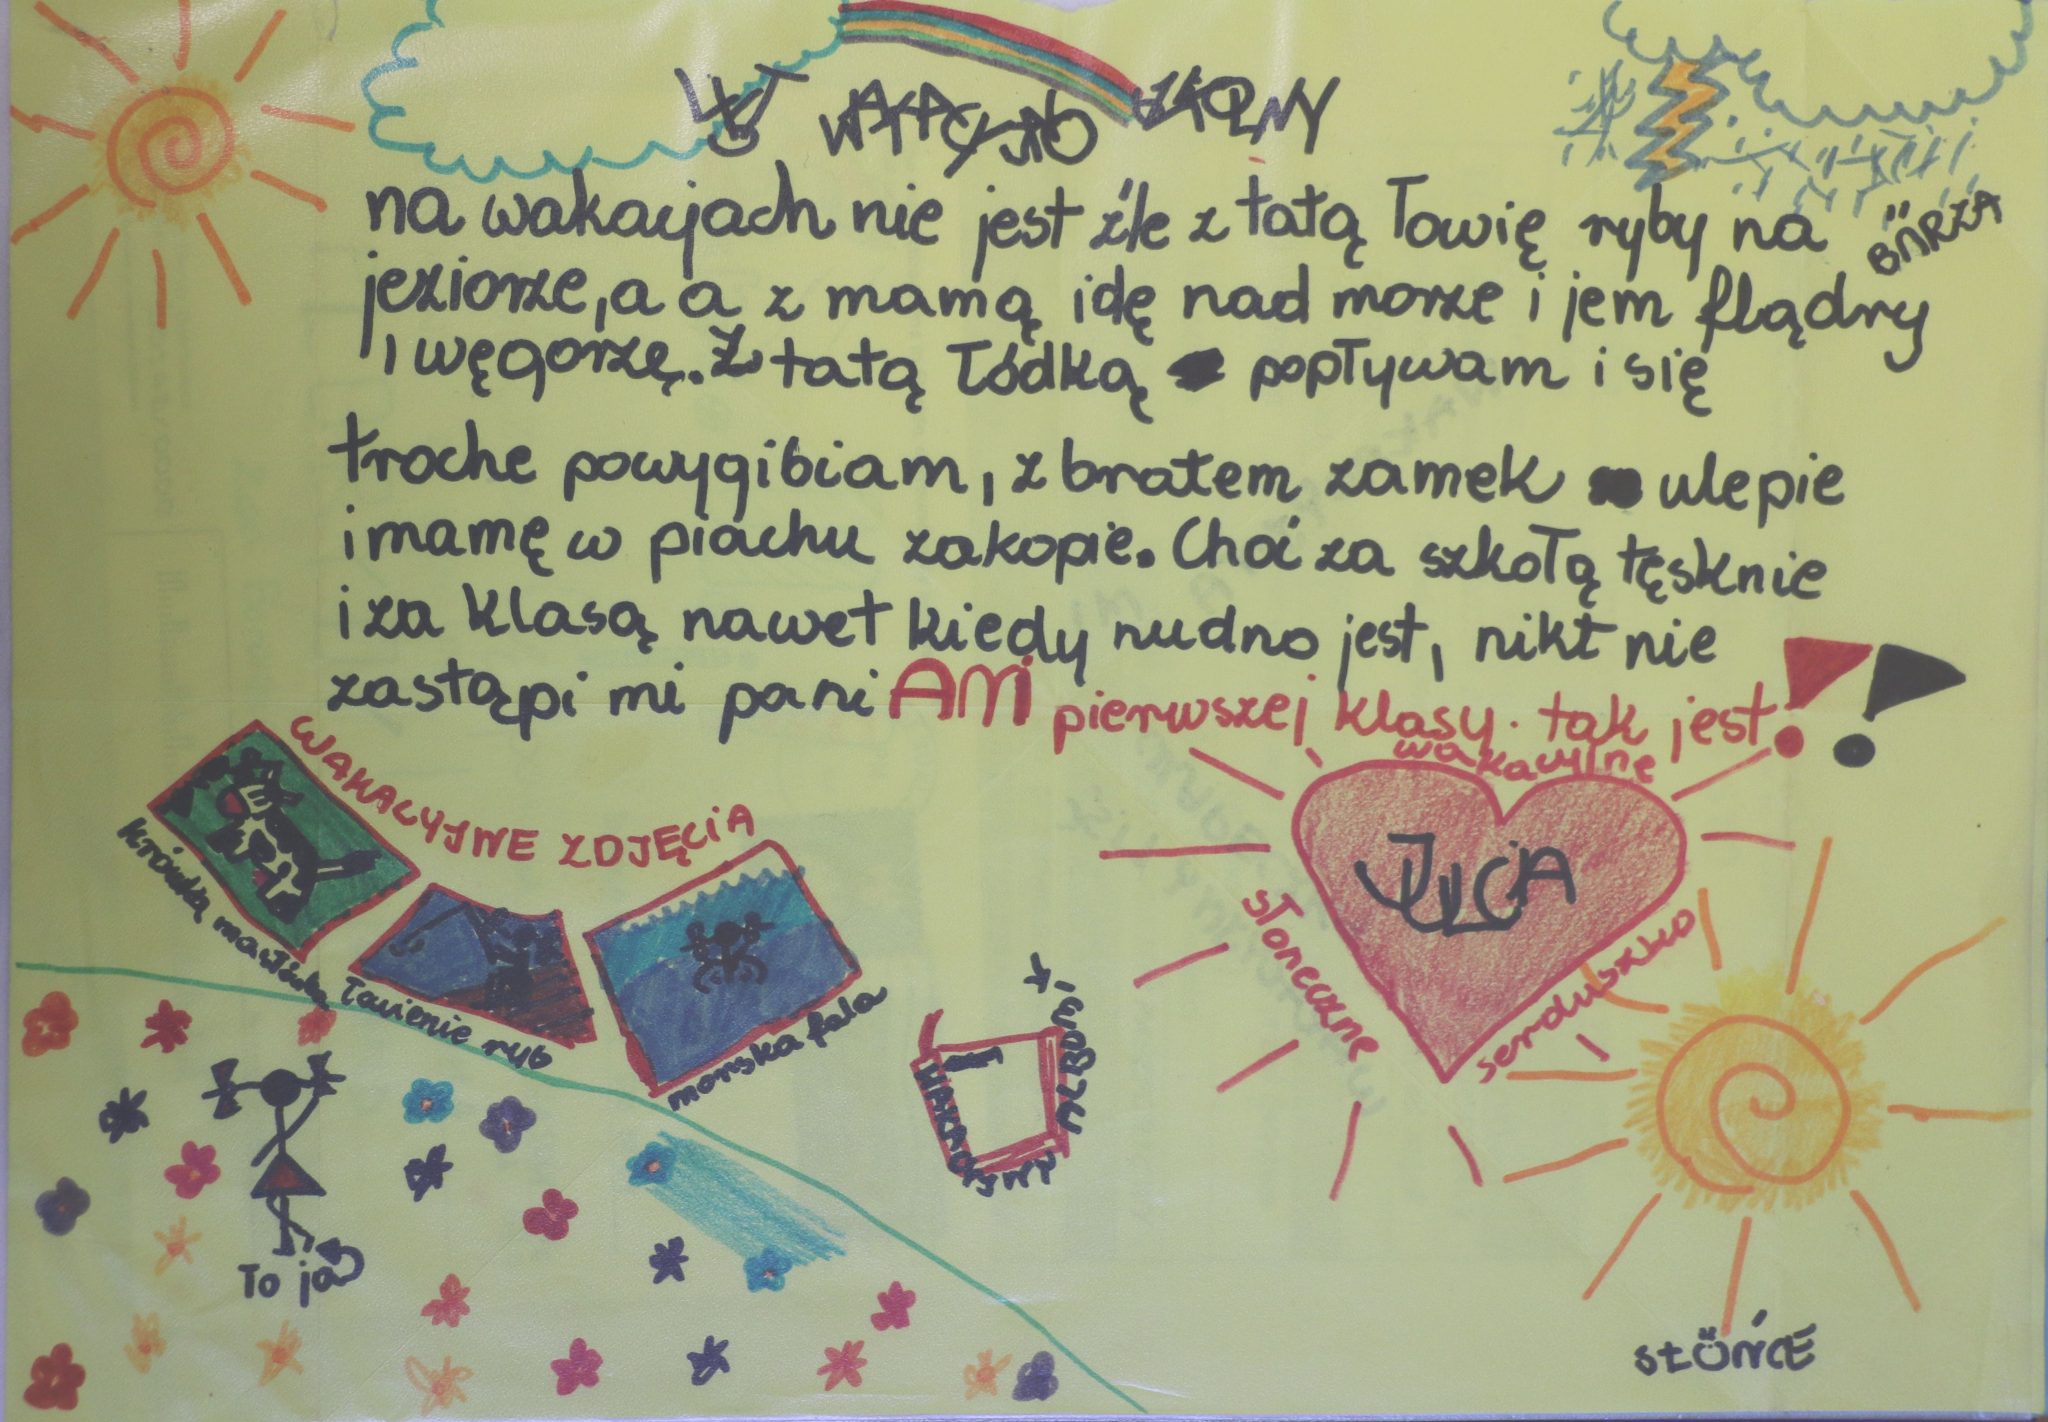 LIST WAKACYJNO SZKOLNY
na wakacjach nie jest źle z tatą łowię ryby na
jeziorze, a a z mamą idę nad morze i jem flądry
i węgorzę. Z tatą łódką popływam i się
troche powygibiam, z bratem zamek ulepie
i mamę w piachu zakopie. Choć za szkołą tęsknie
i za klasą nawet kiedy nudno jest, nikt nie
zastąpi mi pani AMI pierwszej klasy. tak jest!!
BURZA
WAKACYJNE ZDJĘCIA
krówką mućką
łowienie ryb
morska fala
wakacyjne
JULCIA
słoneczne
serduszko
WAKACYJNY
ALBUMIK
To ja
SŁOŃCE